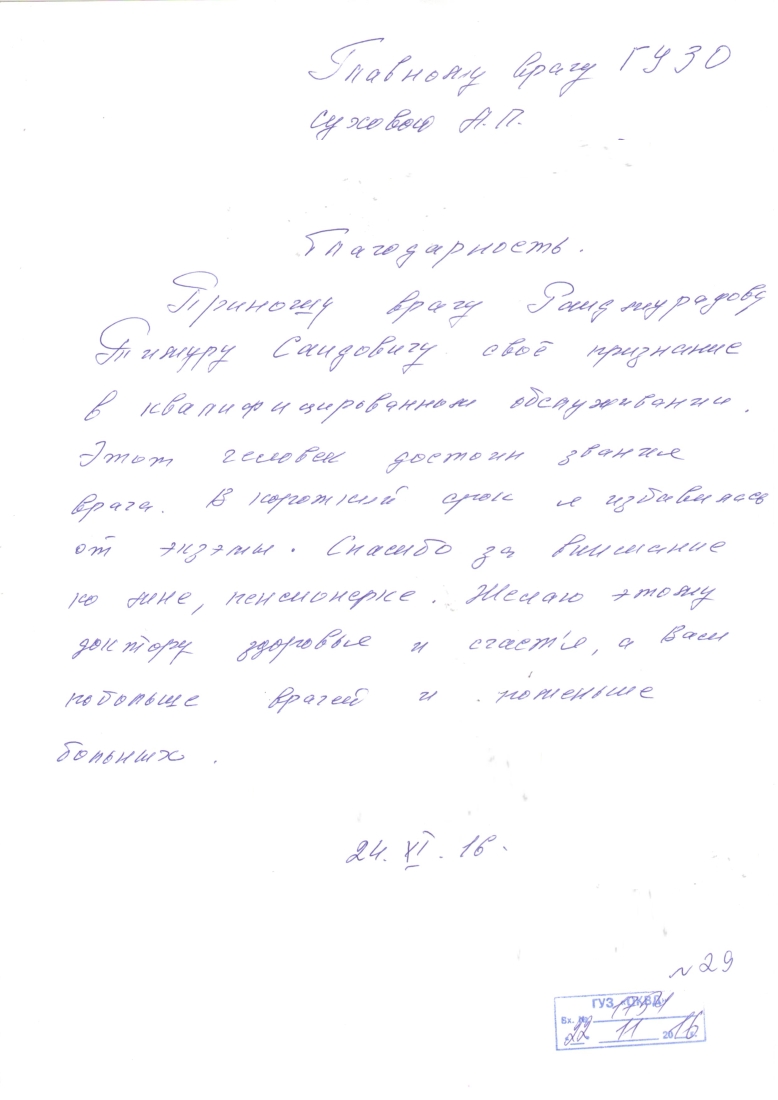 Главному врачу ГУЗО
Сухову А.П.
Благодарность.
Приношу врачу
Тимуру Саидовичу своё признание
в квалифицированном обслуживании.
Этот человек достоин звания
врача. В короткий срок я избавилась
от экзэмы. Спасибо за внимание
ко мне, пенсионерке. Желаю этому
доктору здоровья и счастья, а Вам
побольше врачей и поменьше
больных.
24. XI. 16.
№29
ГУЗ
Вх. №
22 11 2016